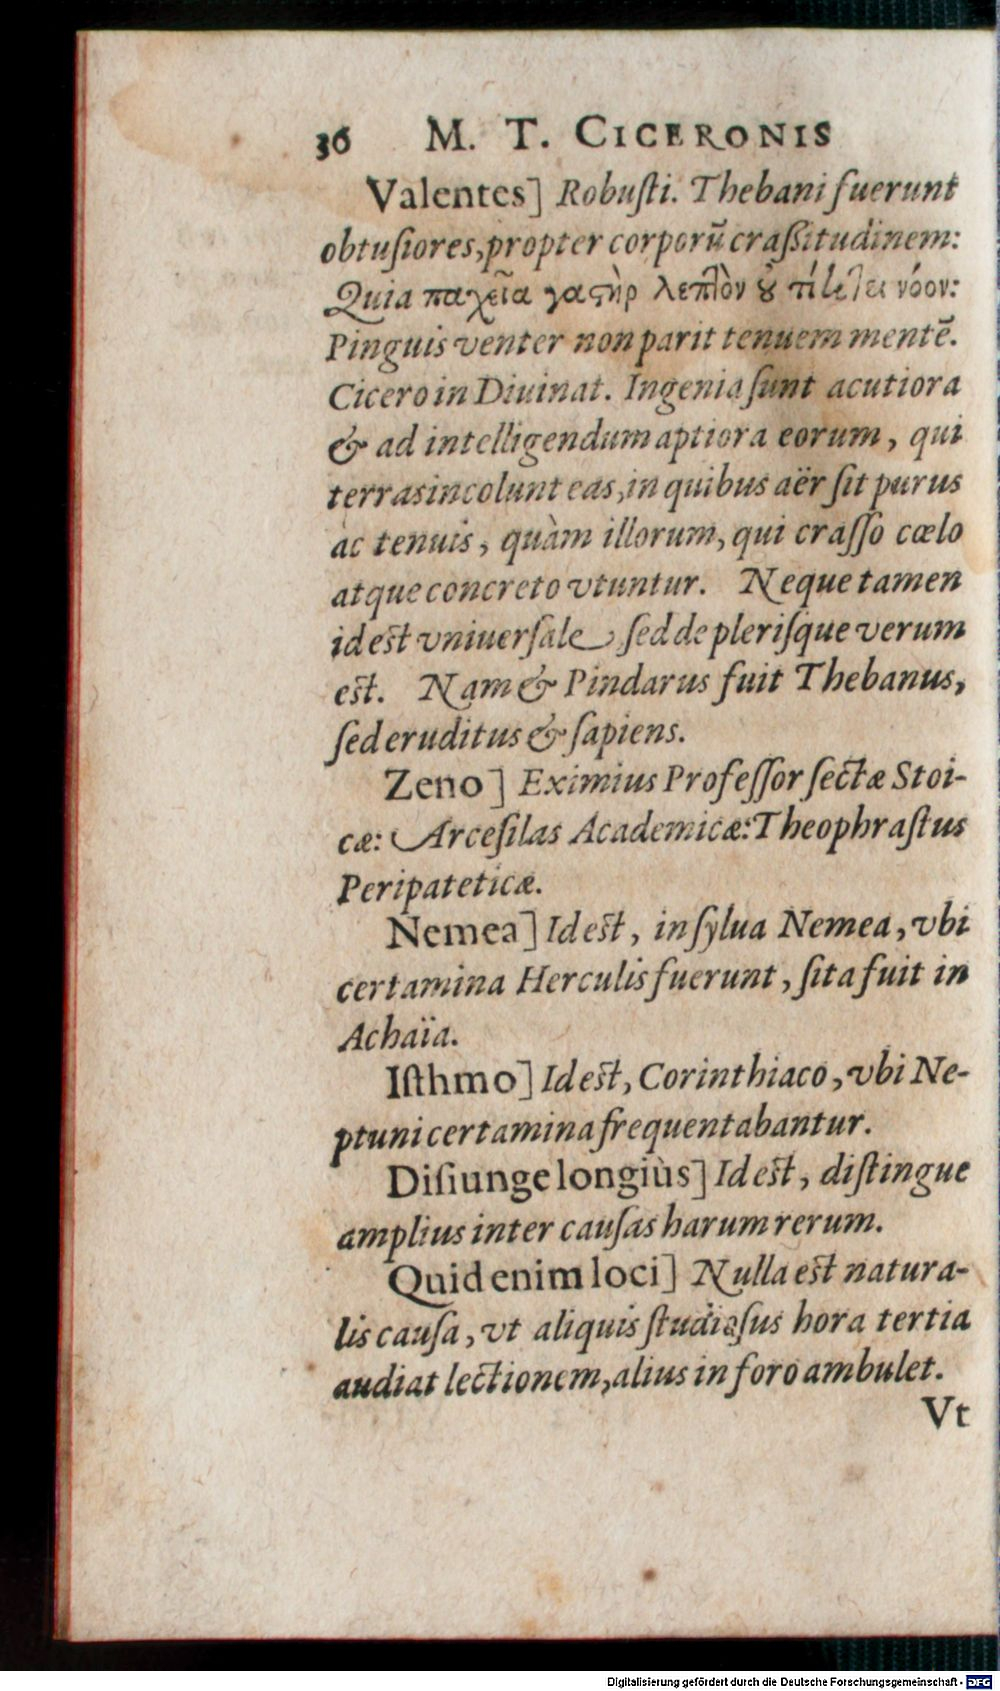 36 M. T. CICERONIS
Valentes] Robuſti. Thebani fuerunt
obtuſiores, propter corporū craſsitudinem:
Quia παχεῖα γαστὴρ λεπτὸν οὐ τίκτει νόον:
Pinguis venter non parit tenuem mentē.
Cicero in Diuinat. Ingenia ſunt acutiora
& ad intelligendum aptiora eorum, qui
terras incolunt eas, in quibus aër ſit purus
ac tenuis, quàm illorum, qui craſſo cœlo
atque concreto vtuntur. Neque tamen
id est vniuerſale ſed de pleriſque verum
est. Nam & Pindarus fuit Thebanus,
ſed eruditus & ſapiens.
Zeno] Eximius Profeſſor ſectæ Stoi-
cæ: Arceſilas Academicæ: Theophraſtus
Peripateticæ.
Nemea] Id est, in ſylua Nemea, vbi
certamina Herculis fuerunt, ſita fuit in
Achaïa.
Iſthmo] Id est, Corinthiaco, vbi Ne-
ptuni certamina frequentabantur.
Diſiunge longiùs] Id est, diſtingue
amplius inter cauſas harum rerum.
Quid enim loci] Nulla est natura-
lis cauſa, vt aliquis ſtudioſus hora tertia
audiat lectionem, alius in foro ambulet.
Vt
Digitalisierung gefördert durch die Deutsche Forschungsgemeinschaft - DFG